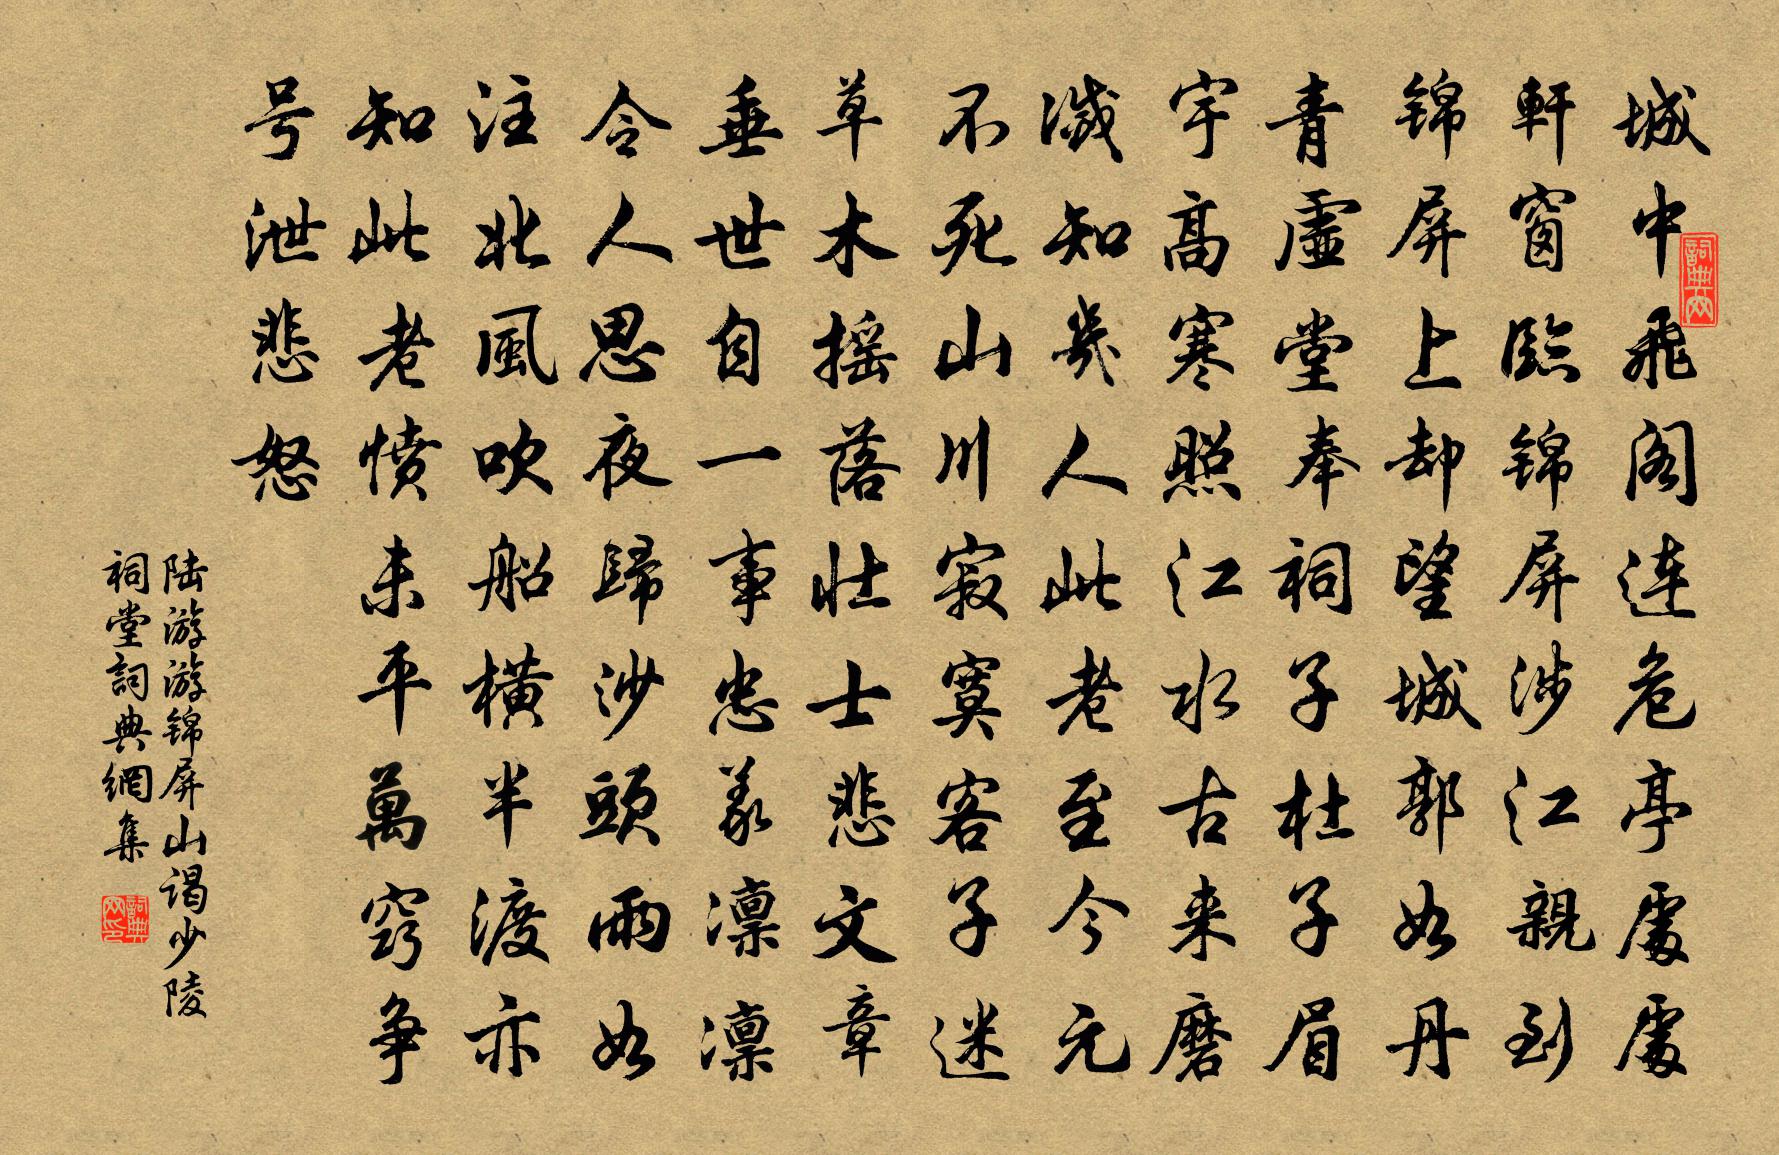 城中飛阁连危亭處處
軒窗臨锦屏涉江親到
锦屏上却望城郭如丹
青虛堂奉祠子杜子眉
宇高寒照江水古来磨
滅知幾人此老至今元
不死山川寂寞客子迷
草木摇落壮士悲文章
垂世自一事忠義凛凛
令人思夜歸沙頭雨如
注北風吹船横半渡亦
知此老愤未平萬竅争
号泄悲怒
陆游游锦屏山谒少陵
祠堂詞典網集
詞典网
詞典网印